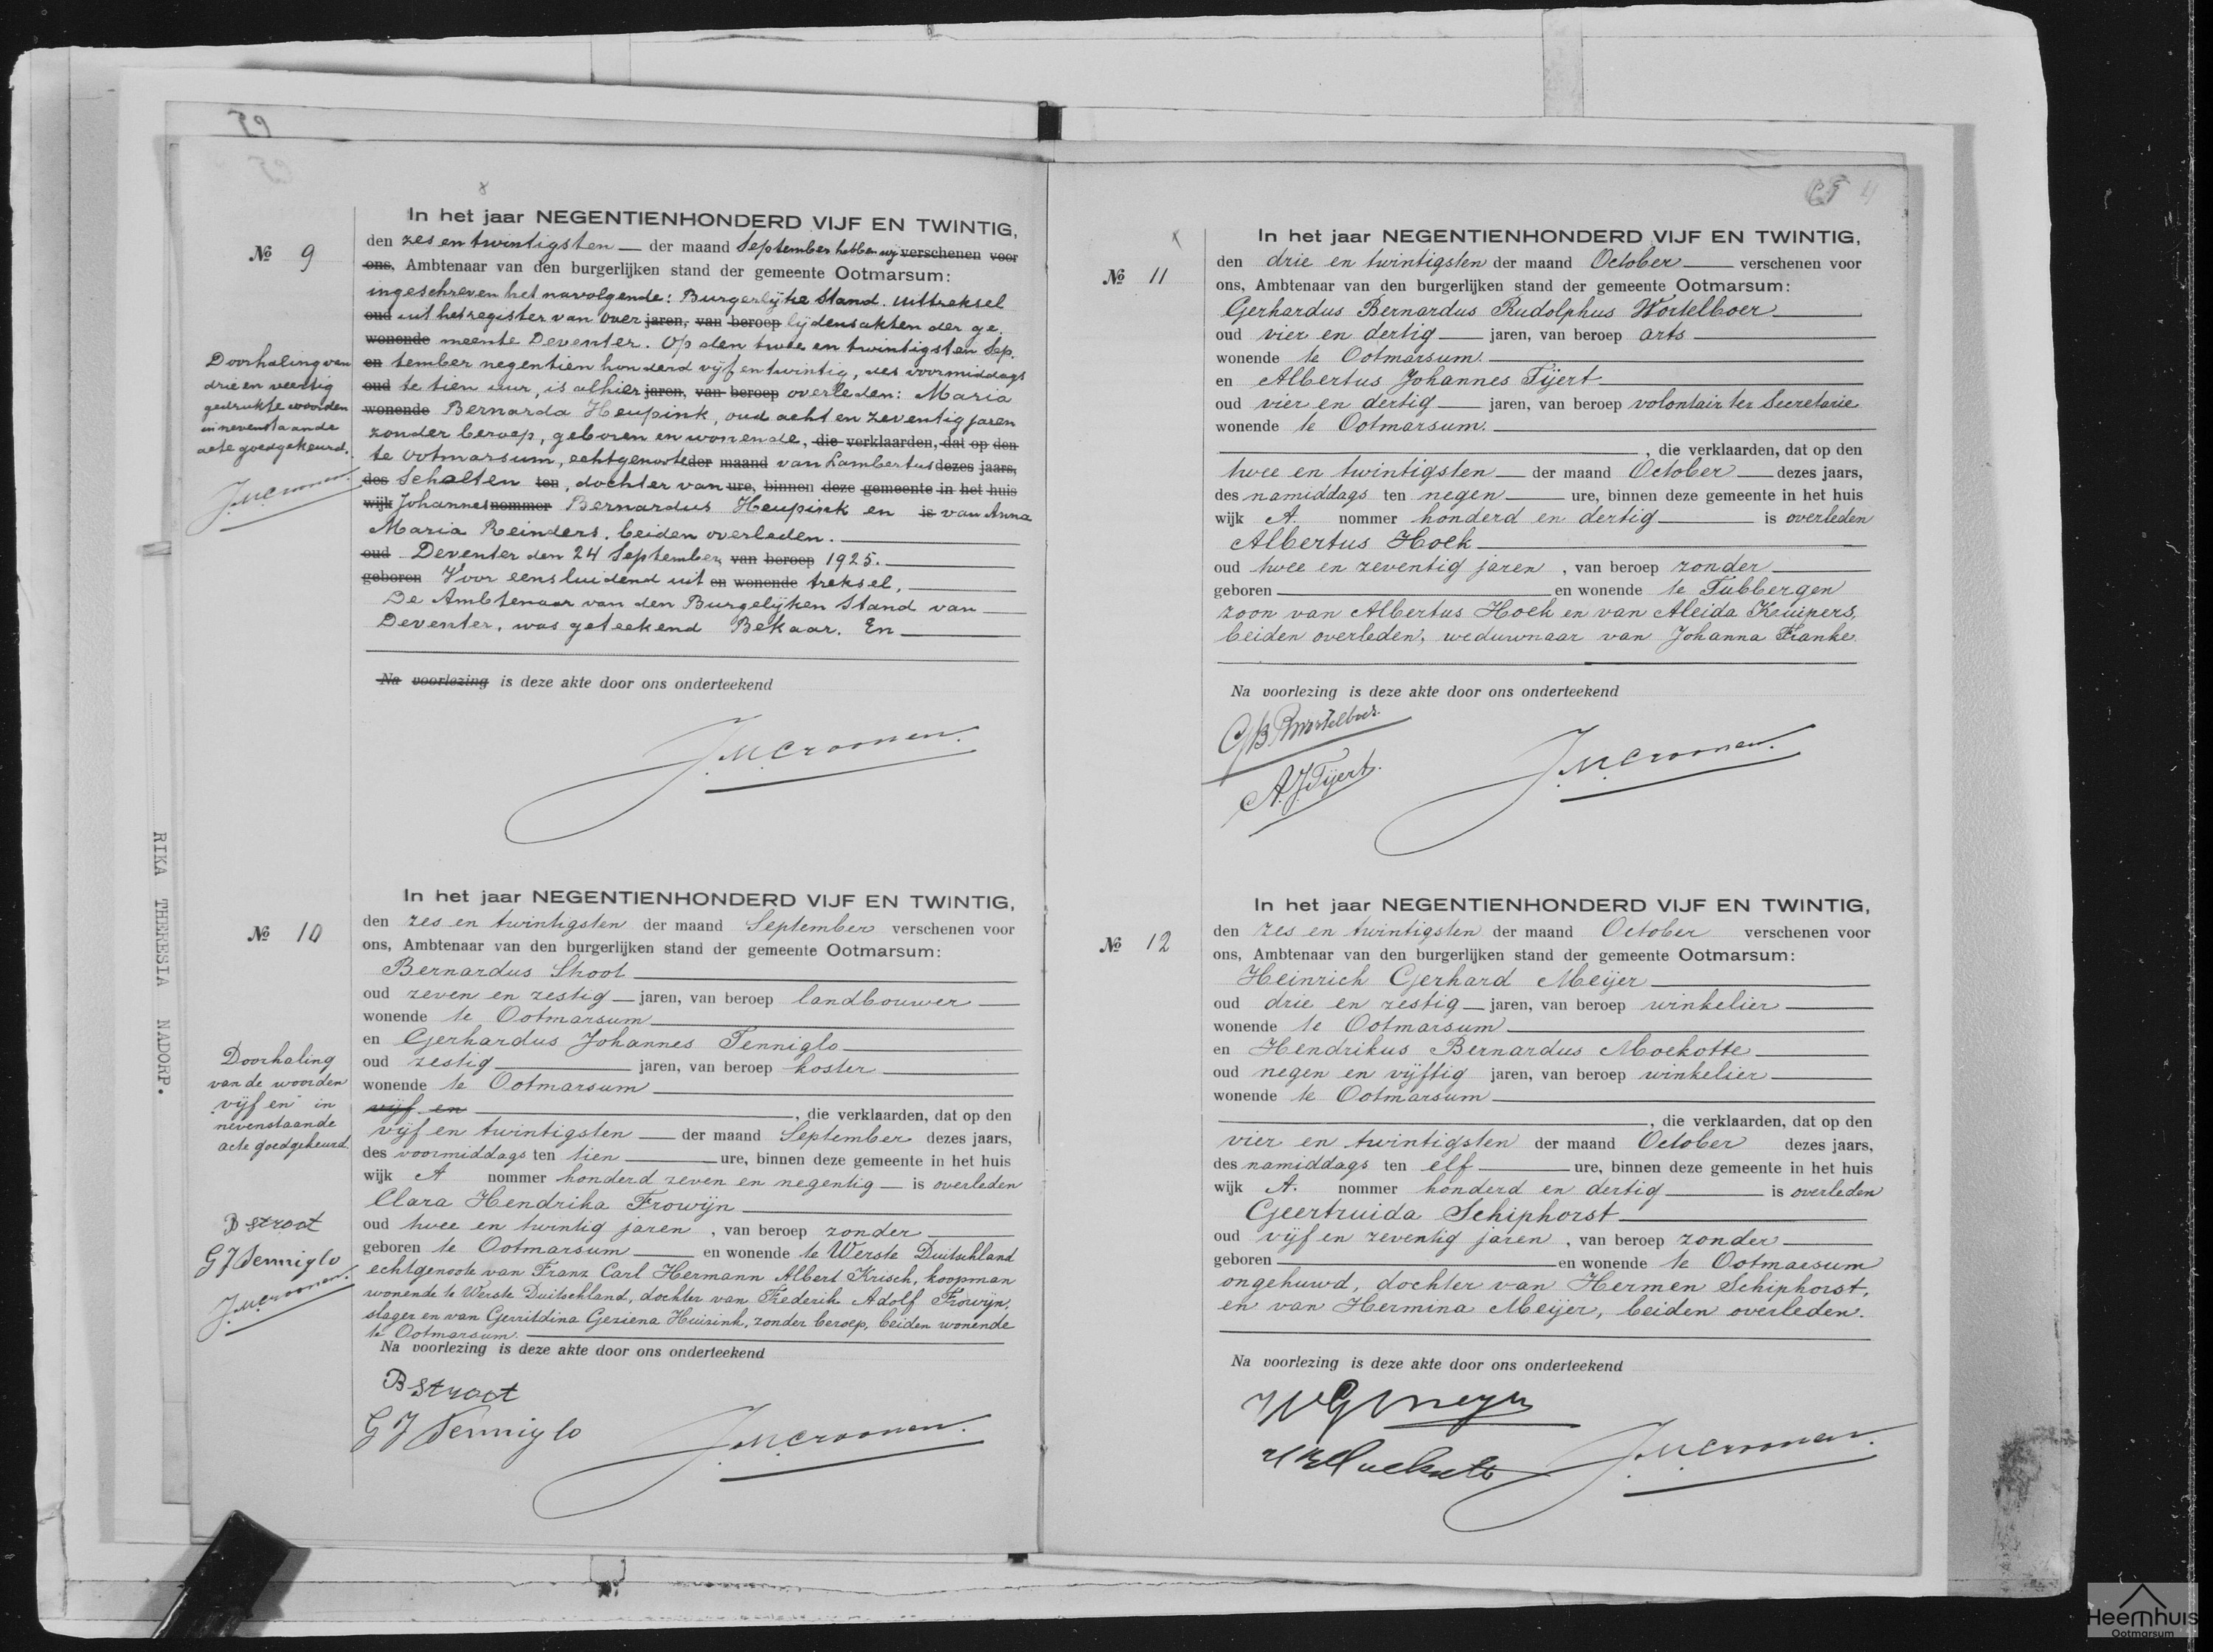 8
In het jaar NEGENTIENHONDERD VIJF EN TWINTIG,
№ 9
den zes en twintigsten der maand September hebben wij verschenen voor
ons, Ambtenaar van den burgerlijken stand der gemeente Ootmarsum:
ingeschreven het navolgende: Burgerlijke Stand. uittreksel
oud uit het register van over jaren, van beroep lijdensakten der ge.
wonende meente Deventer. Op den twee en twintigsten Sep.
en tember negentien honderd vijf en twintig, des voormiddags
oud te tien uur, is alhier jaren, van beroep overleden: Maria
wonende Bernarda Heupink, oud acht en zeventig jaren
zonder beroep, geboren en wonende, die verklaarden, dat op den
te Ootmarsum, echtgenoote der maand van Lambertus dezes jaars,
des Scholten ten, dochter van ure, binnen deze gemeente in het huis
wijk Johannes nommer Bernardus Heupink en is van Anna
Maria Reinders, beiden overleden.
oud Deventer den 24 September van beroep 1925.
geboren Voor eensluidend uit en wonende treksel,
De Ambtenaar van den Burgelijken Stand van
Deventer, was geteekend Bekaar. En
Na voorlezing is deze akte door ons onderteekend
J.M.Croonen.
Doorhaling van
drie en veertig
gedrukte woorden
in nevenstaande
acte goedgekeurd.
J.M.Croonen.
In het jaar NEGENTIENHONDERD VIJF EN TWINTIG,
№ 10
den zes en twintigsten der maand September verschenen voor
ons, Ambtenaar van den burgerlijken stand der gemeente Ootmarsum:
Bernardus Stroot
oud zeven en zestig jaren, van beroep landbouwer
wonende te Ootmarsum
en Gerhardus Johannes Tenniglo
oud zestig jaren, van beroep koster
wonende te Ootmarsum
vijf en , die verklaarden, dat op den
vijf en twintigsten der maand September dezes jaars,
des voormiddags ten tien ure, binnen deze gemeente in het huis
wijk A nommer honderd zeven en negentig is overleden
Clara Hendrika Frowijn
oud twee en twintig jaren , van beroep zonder
geboren te Ootmarsum en wonende te Werste Duitschland
echtgenoote van Franz Carl Hermann Albert Krisch, koopman
wonende te Werste Duitschland, dochter van Frederik Adolf Frowijn,
slager en van Gerritdina Geziena Huisink, zonder beroep, beiden wonende
te Ootmarsum.
Na voorlezing is deze akte door ons onderteekend
B Stroot
G J Tenniglo
J.M.Croonen.
Doorhaling
van de woorden
"vijf en" in
nevenstaande
acte goedgekeurd
B Stroot
G J Tenniglo
J.M.Croonen.
RIKA THERESIA NADORP.
In het jaar NEGENTIENHONDERD VIJF EN TWINTIG,
№ 11
den drie en twintigsten der maand October verschenen voor
ons, Ambtenaar van den burgerlijken stand der gemeente Ootmarsum:
Gerhardus Bernardus Rudolphus Wortelboer
oud vier en dertig jaren, van beroep arts
wonende te Ootmarsum.
en Albertus Johannes Tijert
oud vier en dertig jaren, van beroep volontair ter Secretarie
wonende te Ootmarsum.
, die verklaarden, dat op den
twee en twintigsten der maand October dezes jaars,
des namiddags ten negen ure, binnen deze gemeente in het huis
wijk A. nommer honderd en dertig is overleden
Albertus Hoek
oud twee en zeventig jaren , van beroep zonder
geboren en wonende te Tubbergen
zoon van Albertus Hoek en van Aleida Kruipers,
beiden overleden, weduwnaar van Johanna Franke.
Na voorlezing is deze akte door ons onderteekend
G B R Wortelboer.
A.J.Tijert.
J.M.Croonen.
In het jaar NEGENTIENHONDERD VIJF EN TWINTIG,
№ 12
den zes en twintigsten der maand October verschenen voor
ons, Ambtenaar van den burgerlijken stand der gemeente Ootmarsum:
Heinrich Gerhard Meijer
oud drie en zestig jaren, van beroep winkelier
wonende te Ootmarsum
en Hendrikus Bernardus Moekotte
oud negen en vijftig jaren, van beroep winkelier
wonende te Ootmarsum
, die verklaarden, dat op den
vier en twintigsten der maand October dezes jaars,
des namiddags ten elf ure, binnen deze gemeente in het huis
wijk A. nommer honderd en dertig is overleden
Geertruida Schiphorst
oud vijf en zeventig jaren , van beroep zonder
geboren en wonende te Ootmarsum
ongehuwd, dochter van Hermen Schiphorst,
en van Hermina Meijer, beiden overleden.
Na voorlezing is deze akte door ons onderteekend
J.M.Croonen.
Heemhuis
Ootmarsum